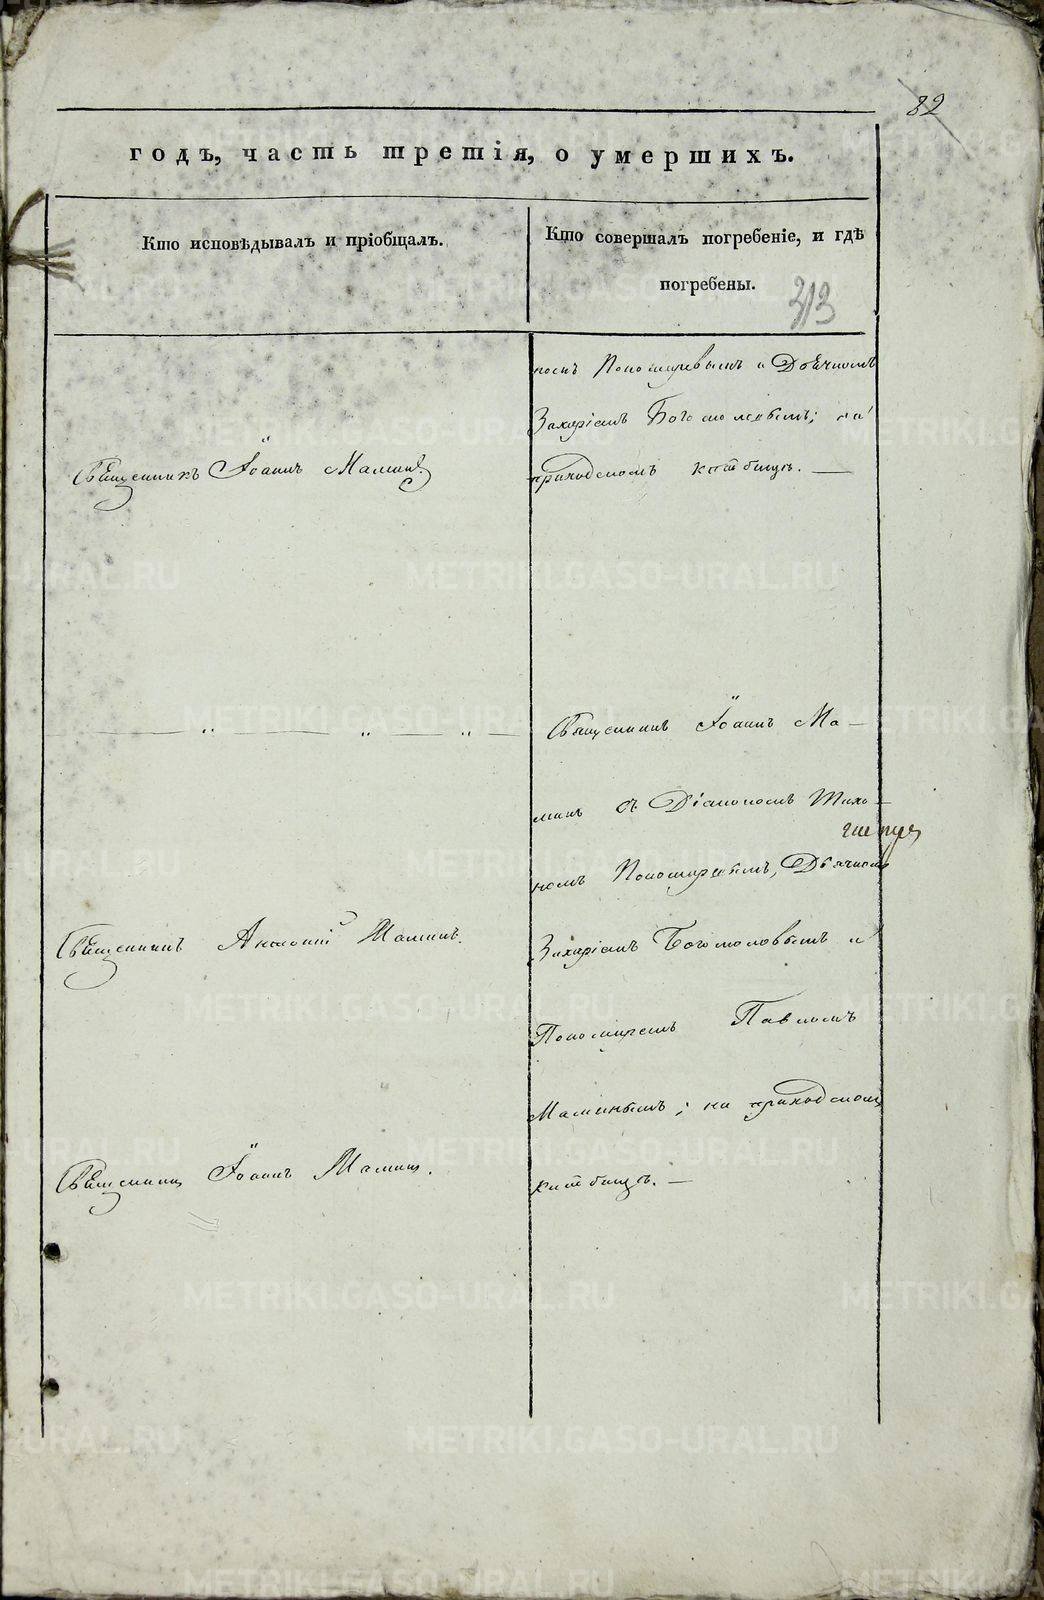 82
годъ, часть третія, о умершихъ.
Кто исповѣдывалъ и пріобщалъ.
Кто совершалъ погребеніе, и гдѣ
погребены.
313
Пономаревымъ и Дьячкомъ
Захаріемъ Богомоловымъ; на
Священникъ Іоаннъ Маминъ
приходскомъ кладбищѣ. —
Священникъ Іоаннъ Ма-
минъ съ Діакономъ
Пономаревымъ, Дьячкомъ
Священникъ Анатолій Маминъ.
Захаріемъ Богомоловымъ и
Пономаремъ Павломъ
Маминымъ; на приходскомъ
Священникъ Іоаннъ Маминъ.
кладбищѣ. —
METRIKI.GASO-URAL.RU